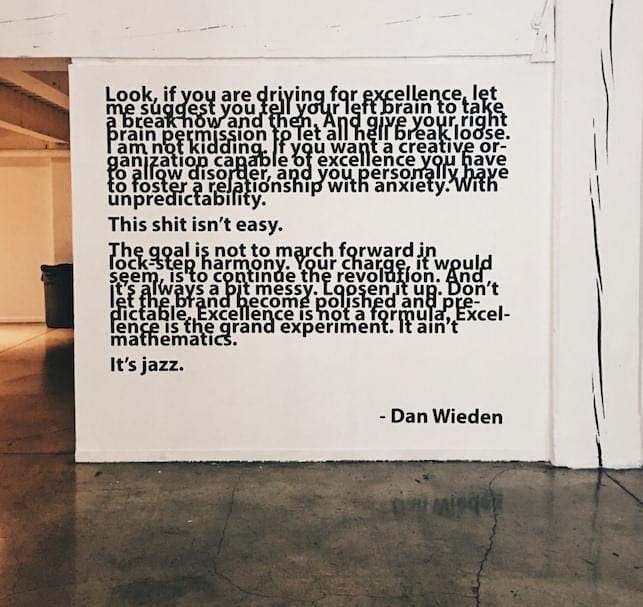 Look, if you are driving for excellence, let
me suggest you tell your left brain to take
a break now and then. And give your right
brain permission to let all hell break loose.
I am not kidding. If you want a creative or-
ganization capable of excellence you have
to allow disorder, and you personally have
to foster a relationship with anxiety. With
unpredictability.
This shit isn't easy.
The goal is not to march forward in
lock-step harmony. Your charge, it would
seem, is to continue the revolution. And
it's always a bit messy. Loosen it up. Don't
let the brand become polished and pre-
dictable. Excellence is not a formula, Excel-
lence is the grand experiment. It ain't
mathematics.
It's jazz.
- Dan Wieden